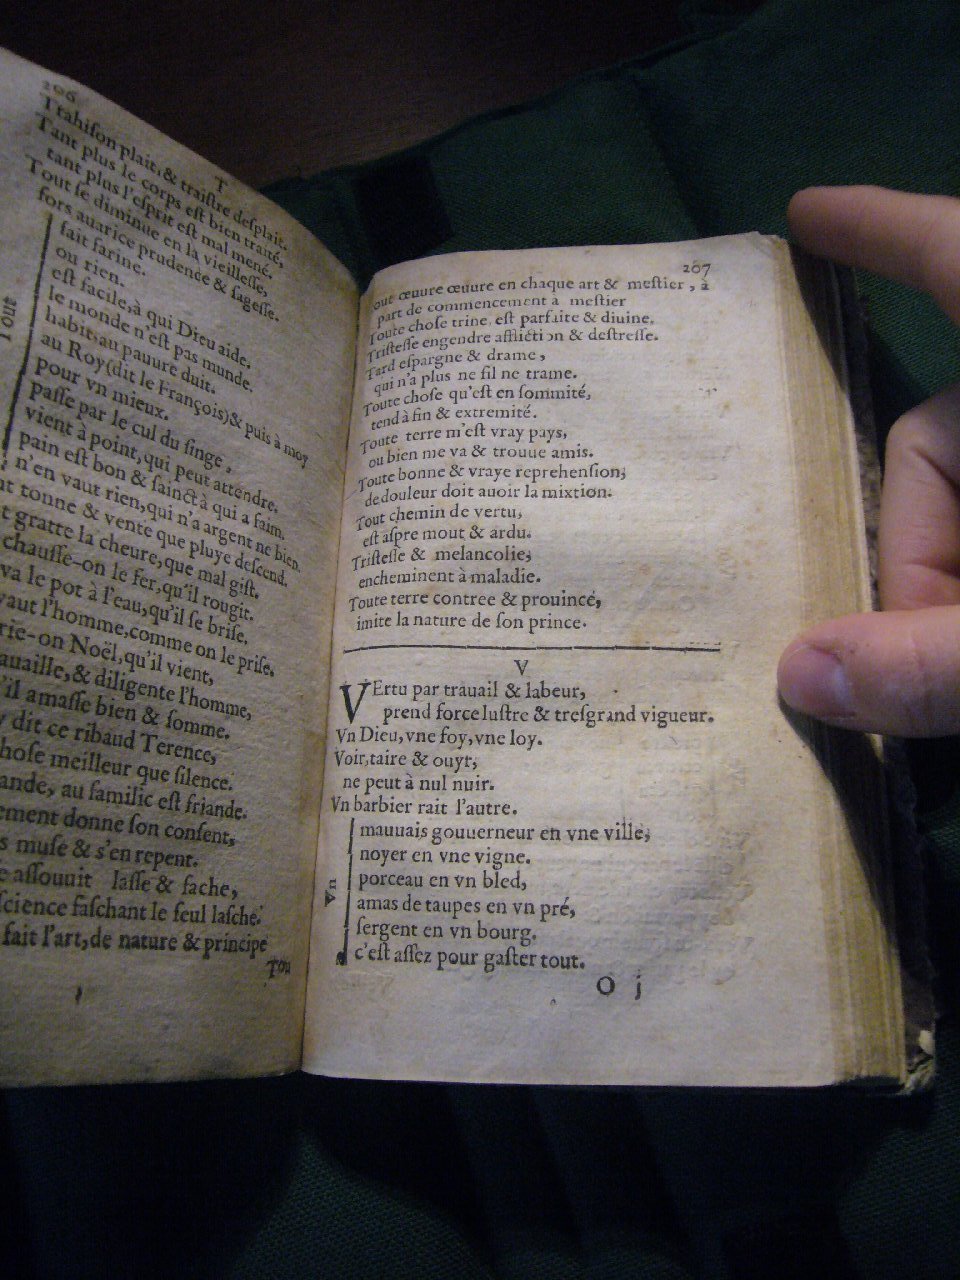 206
T
Trahiſon plait, & traiſtre deſplait.
Tant plus le corps eſt bien traité,
tant plus l'eſprit eſt mal mené.
Tout ſe diminue en la vieilleſſe,
fors auarice prudence & ſageſſe.
fait farine.
ou rien.
eſt facile, à qui Dieu aide.
le monde n'eſt pas munde.
habit, au pauure duit.
au Roy (dit le François) & puis à moy
pour vn mieux.
paſſe par le cul du ſinge.
vient à point, qui peut attendre.
pain eſt bon & ſainct à qui a faim.
n'en vaut rien, qui n'a argent ne bien.
tonne & vente que pluye deſcend.
gratte la cheure, que mal giſt.
chauffe-on le fer, qu'il rougit.
va le pot à l'eau, qu'il ſe briſe.
vaut l'homme, comme on le priſe.
rie-on Noël, qu'il vient,
auaille, & diligente l'homme,
'il amaſſe bien & ſomme.
dit ce ribaud Terence,
hoſe meilleur que ſilence.
ande, au familic eſt friande.
ement donne ſon conſent,
muſe & s'en repent.
aſſouuit laſſe & fache,
ſcience faſchant le ſeul laſche.
fait l'art, de nature & principe
Tou
Tout
207
out œuure œuure en chaque art & meſtier, à
part de commencement à meſtier
Toute choſe trine eſt parfaite & diuine.
Triſteſſe engendre affliction & deſtreſſe.
Tard eſpargne & drame,
qui n'a plus ne fil ne trame.
Toute choſe qu'eſt en ſommité,
tend à fin & extremité.
Toute terre m'eſt vray pays,
ou bien me va & trouue amis.
Toute bonne & vraye reprehenſion;
de douleur doit auoir la mixtion.
Tout chemin de vertu,
eſt aſpre mout & ardu.
Triſteſſe & melancolie;
encheminent à maladie.
Toute terre contree & prouince,
imite la nature de ſon prince.
V
VErtu par trauail & labeur,
prend force luſtre & treſgrand vigueur.
Vn Dieu, vne foy, vne loy.
Voir, taire & ouyr,
ne peut à nul nuir.
Vn barbier rait l'autre.
mauuais gouuerneur en vne ville;
noyer en vne vigne.
porceau en vn bled,
Vn
amas de taupes en vn pré,
ſergent en vn bourg.
c'eſt aſſez pour gaſter tout.
O j